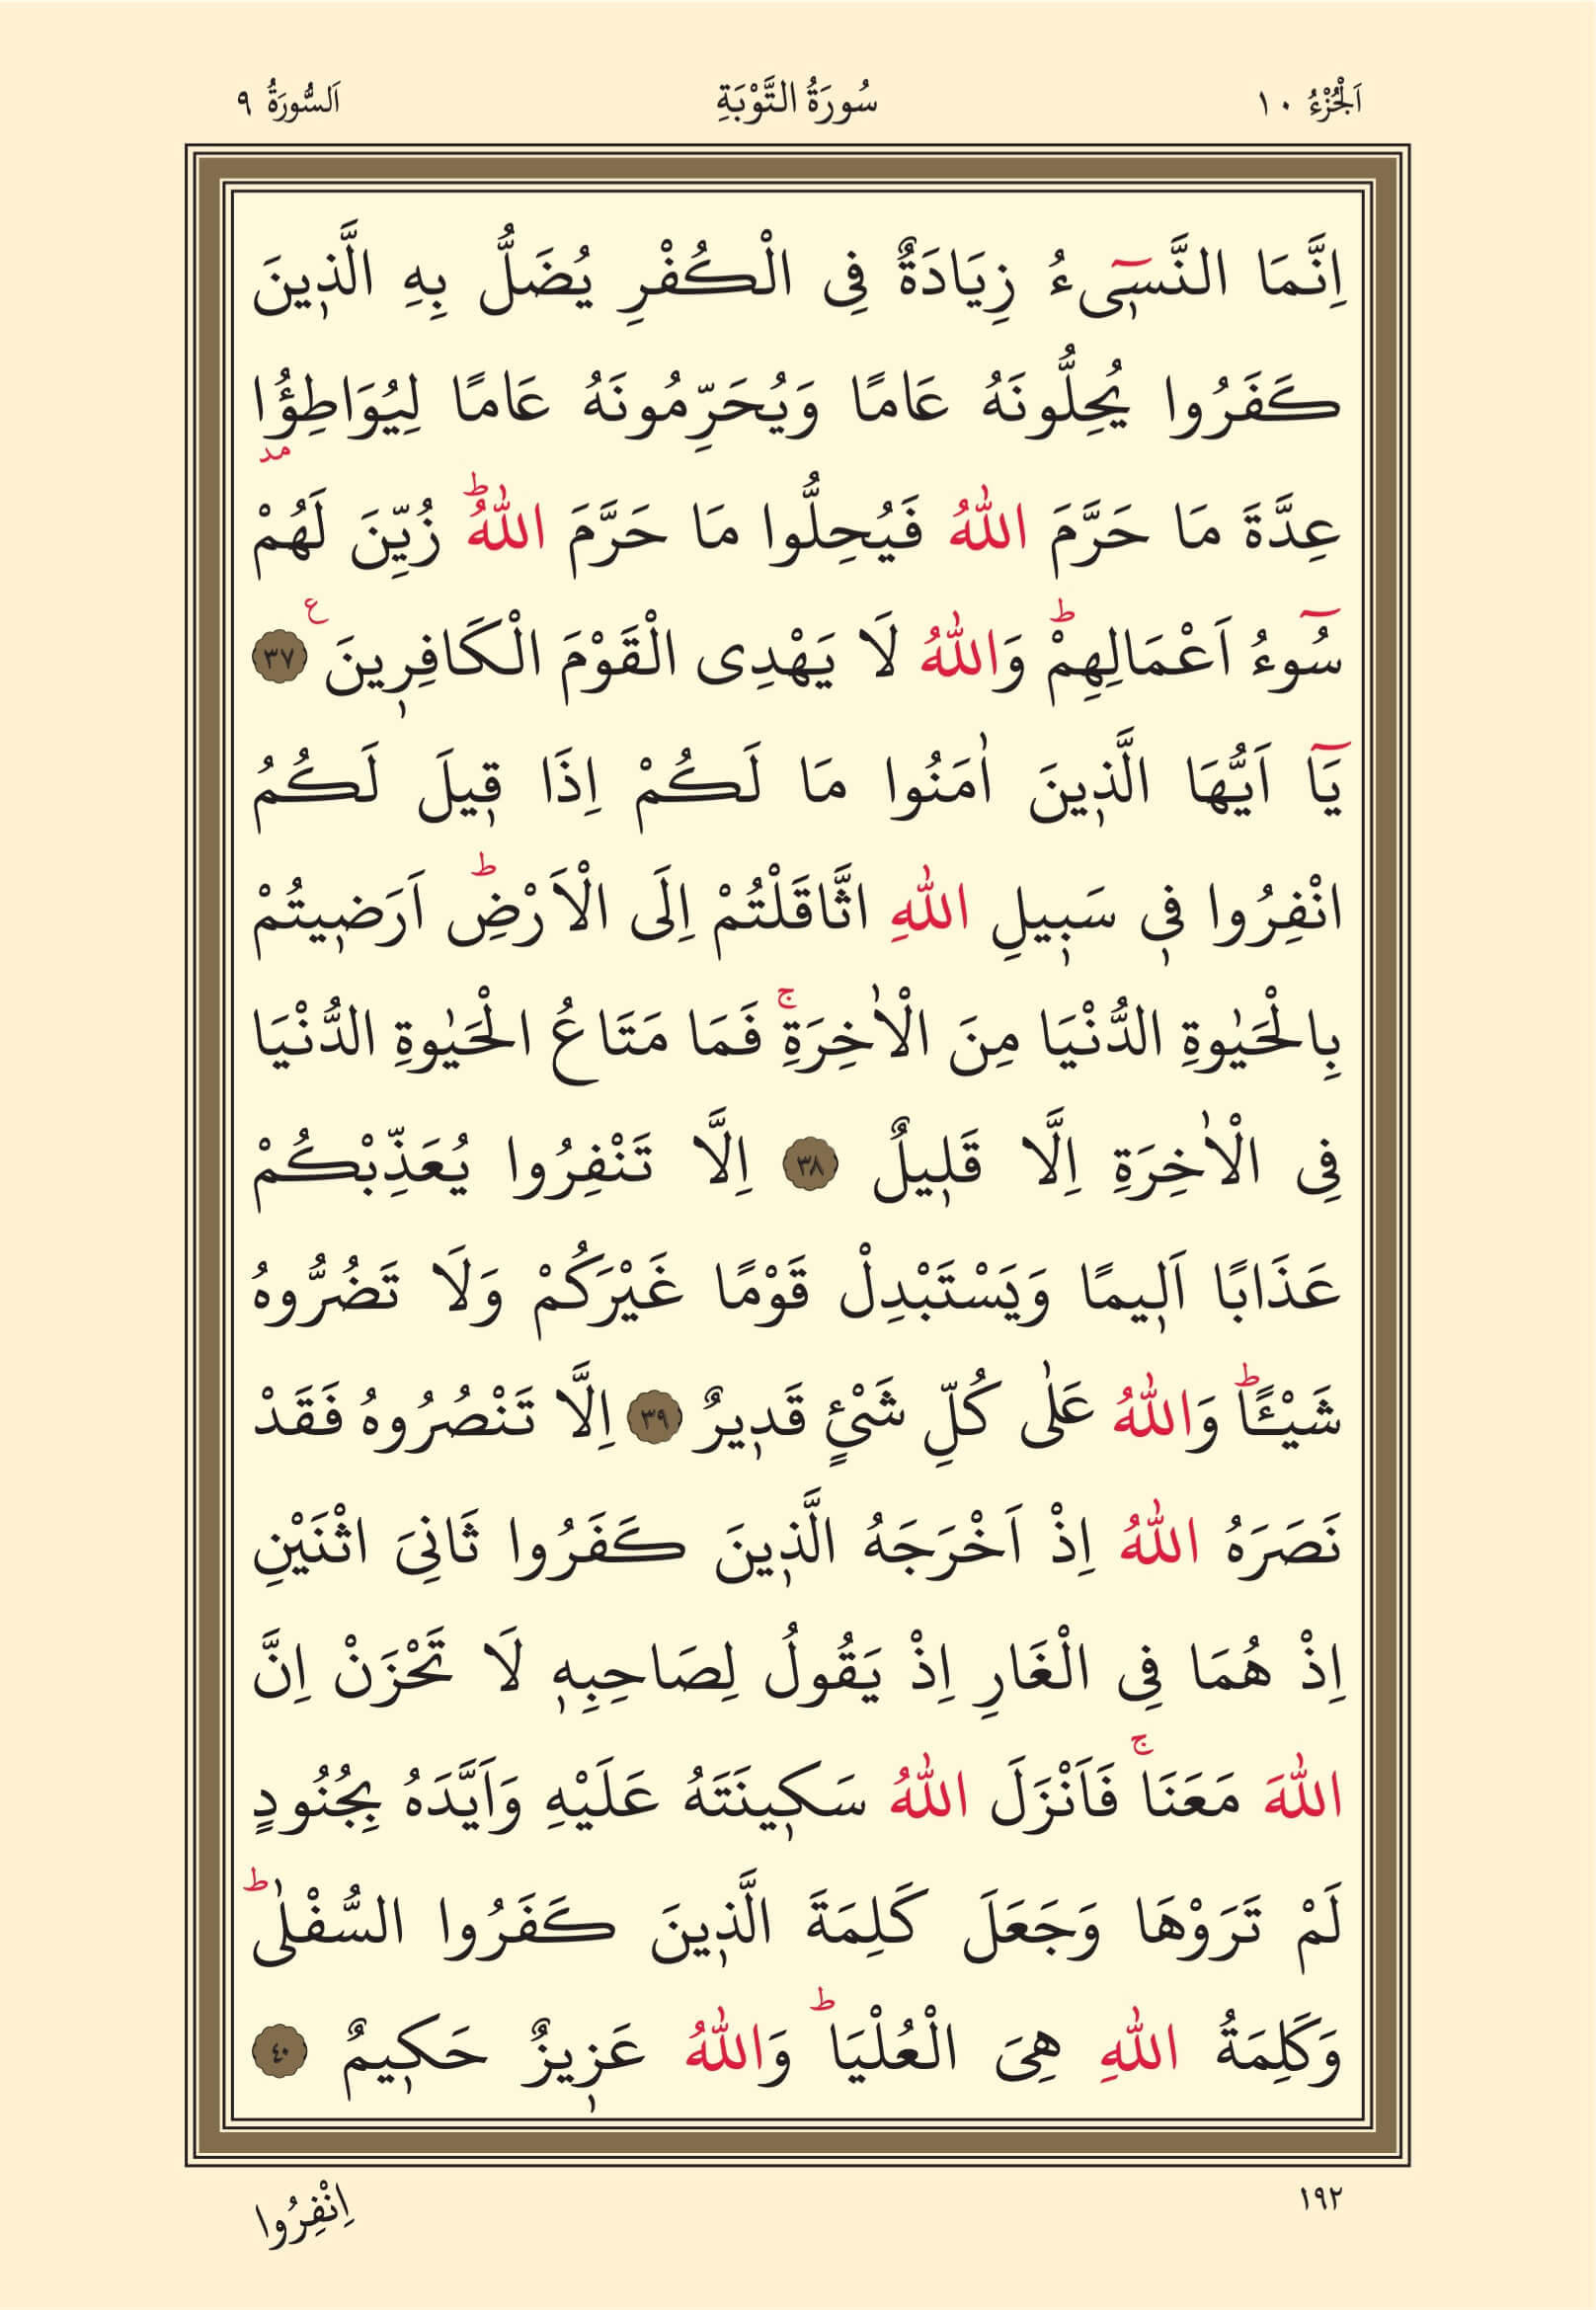 اَلْجُزْءُ ١٠ سُورَةُ التَّوْبَةِ اَلسُّورَةُ ٩
اِنَّمَا النَّس۪ٓيءُ زِيَادَةٌ فِي الْكُفْرِ يُضَلُّ بِهِ الَّذ۪ينَ
كَفَرُوا يُحِلُّونَهُ عَامًا وَيُحَرِّمُونَهُ عَامًا لِيُوَاطِؤُ۫ا مد
عِدَّةَ مَا حَرَّمَ اللّٰهُ فَيُحِلُّوا مَا حَرَّمَ اللّٰهُۜ زُيِّنَ لَهُمْ
سُٓوءُ اَعْمَالِهِمْۜ وَاللّٰهُ لَا يَهْدِي الْقَوْمَ الْكَافِر۪ينَ ع ٣٧
يَٓا اَيُّهَا الَّذ۪ينَ اٰمَنُوا مَا لَكُمْ اِذَا ق۪يلَ لَكُمُ
انْفِرُوا ف۪ي سَب۪يلِ اللّٰهِ اثَّاقَلْتُمْ اِلَى الْاَرْضِۜ اَرَض۪يتُمْ
بِالْحَيٰوةِ الدُّنْيَا مِنَ الْاٰخِرَةِۚ فَمَا مَتَاعُ الْحَيٰوةِ الدُّنْيَا
فِي الْاٰخِرَةِ اِلَّا قَل۪يلٌ ٣٨ اِلَّا تَنْفِرُوا يُعَذِّبْكُمْ
عَذَابًا اَل۪يمًا وَيَسْتَبْدِلْ قَوْمًا غَيْرَكُمْ وَلَا تَضُرُّوهُ
شَيْـًٔاۜ وَاللّٰهُ عَلٰى كُلِّ شَيْءٍ قَد۪يرٌ ٣٩ اِلَّا تَنْصُرُوهُ فَقَدْ
نَصَرَهُ اللّٰهُ اِذْ اَخْرَجَهُ الَّذ۪ينَ كَفَرُوا ثَانِيَ اثْنَيْنِ
اِذْ هُمَا فِي الْغَارِ اِذْ يَقُولُ لِصَاحِبِه۪ لَا تَحْزَنْ اِنَّ
اللّٰهَ مَعَنَاۚ فَاَنْزَلَ اللّٰهُ سَك۪ينَتَهُ عَلَيْهِ وَاَيَّدَهُ بِجُنُودٍ
لَمْ تَرَوْهَا وَجَعَلَ كَلِمَةَ الَّذ۪ينَ كَفَرُوا السُّفْلٰىۜ
وَكَلِمَةُ اللّٰهِ هِيَ الْعُلْيَاۜ وَاللّٰهُ عَز۪يزٌ حَك۪يمٌ ٤٠
١٩٢ اِنْفِرُوا